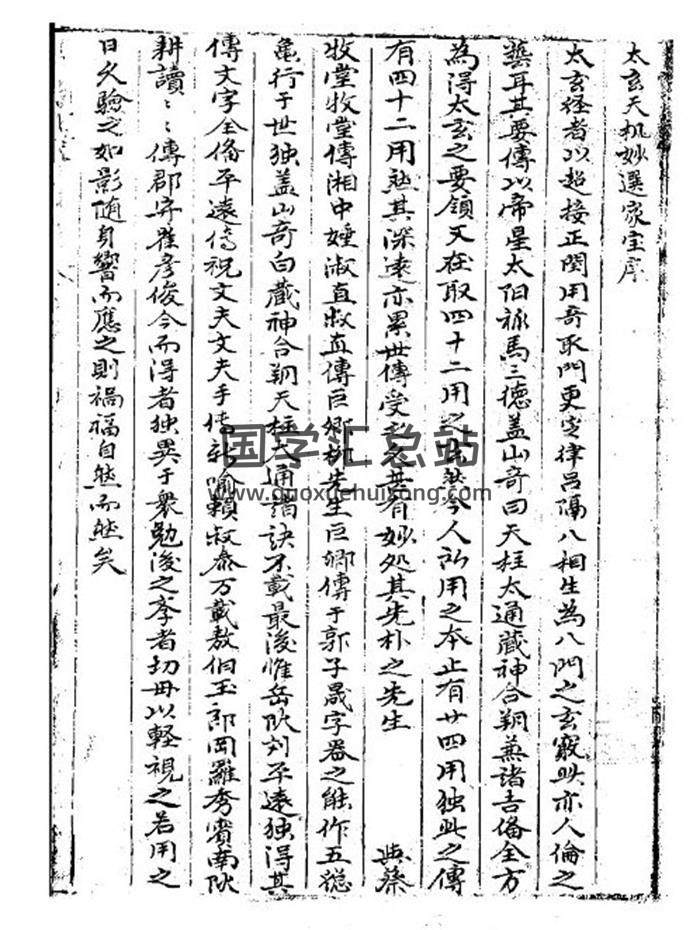 太玄天机妙選家宝序
太玄经者以超接正閏用奇取門更定律吕隔八相生為八門之玄竅此亦人倫之
葉耳其要傳以帝星太阳禄馬三德盖山奇曰天柱太通藏神合朔兼諸吉备全方
為得太玄之要領又在取四十二用之 然今人所用之本止有廿四用独此之傳
有四十二用 其深遠亦累世傳受 之其有妙处其先朴之先生 典蔡
牧堂牧堂傳湘中 淑直叔直傳巨卿柳先生巨卿傳于郭子晟字器之能作五
龟行于世独盖山奇白藏神合朔天柱太通諸訣不載最後惟岳阳刘平遠独得其
傳文字全备平遠傳祝文夫文夫手傳新喻賴叔泰万載敖伯玉 岡羅秀賓南阳
耕讀〻〻傳郡 彦俊今而得者独異于衆勉後之孝者切毋以軽視之若用之
日久驗之如影随身響而應之則禍福自然而然矣
国学汇总站
www.guoxuehuizong.com